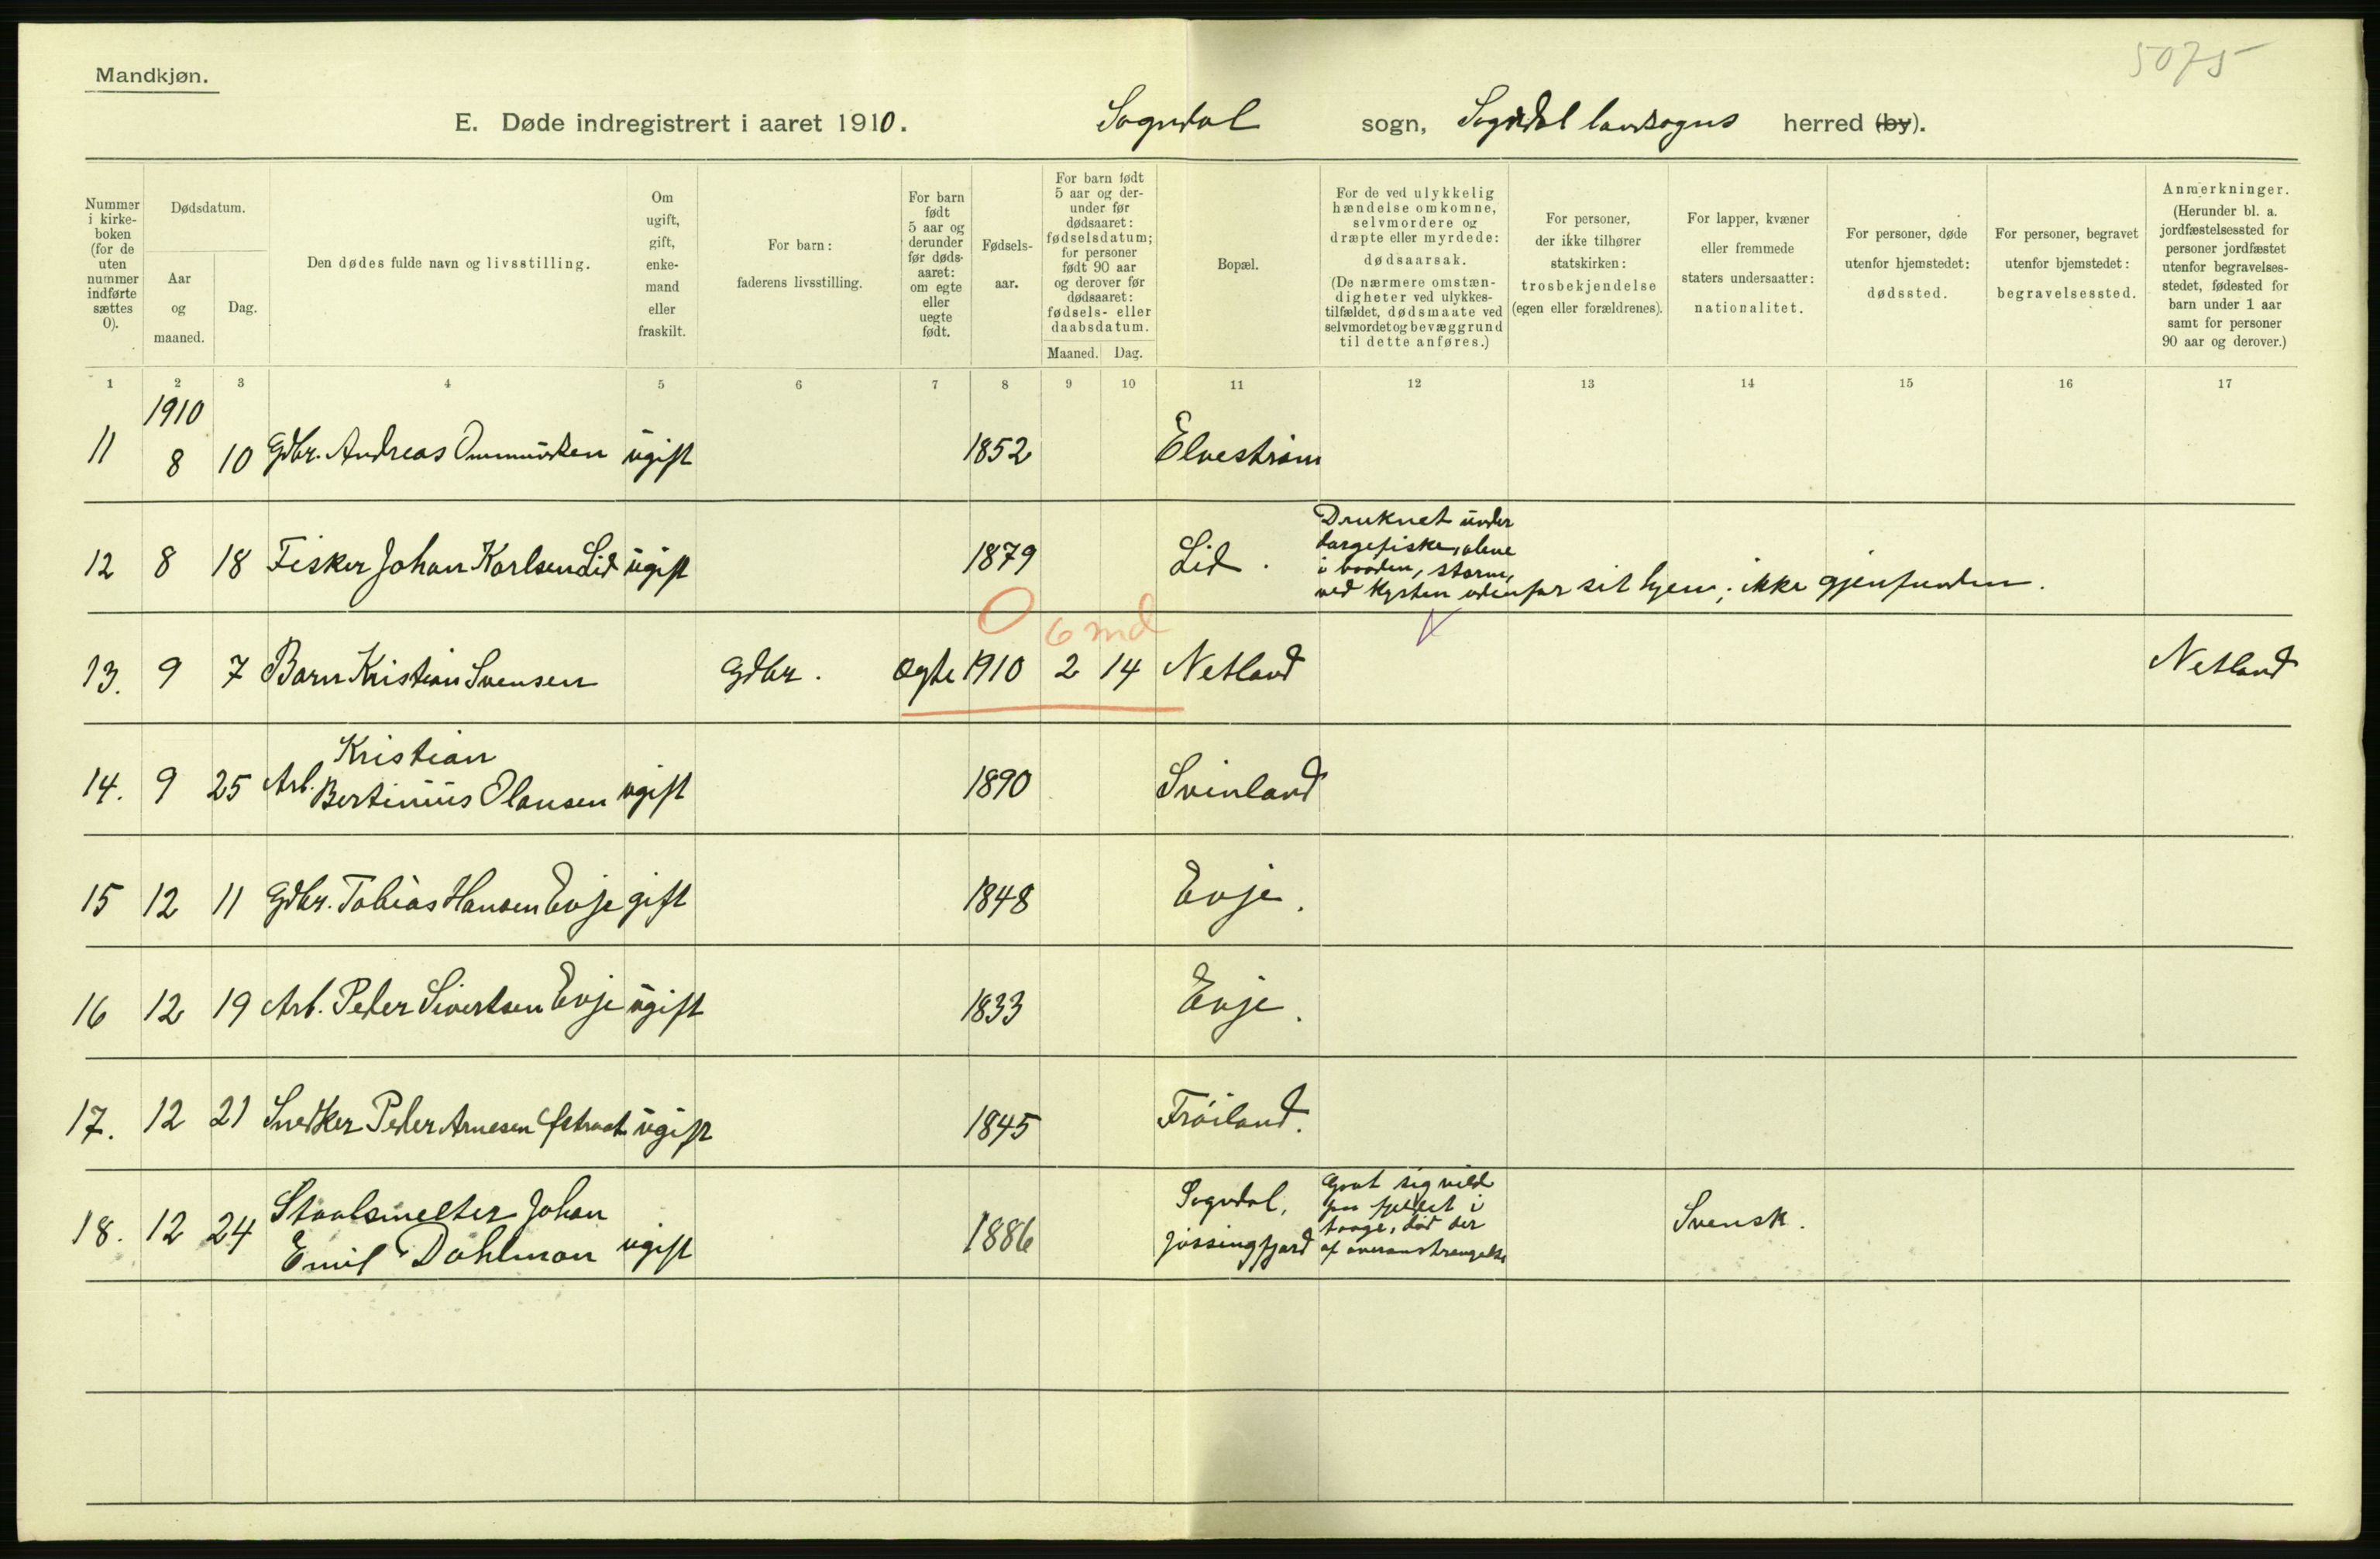 5075
Mandkjøn.
E. Døde indregistrert i aaret 1910. Sogndal sogn, Sogndal landsogns herred (by).
Nummer i kirkeboken (for de uten nummer indførte sættes 0).
Dødsdatum.
Aar og maaned.
Dag.
Den dødes fulde navn og livsstilling.
Om ugift, gift, enkemand eller fraskilt.
For barn: faderens livsstilling.
For barn født 5 aar og derunder før dødsaaret: om egte eller uegte født.
Fødselsaar.
For barn født 5 aar og derunder før dødsaaret: fødselsdatum; for personer født 90 aar og derover før dødsaaret: fødsels- eller daabsdatum.
Maaned. Dag.
Bopæl.
For de ved ulykkelig hændelse omkomne, selvmordere og dræpte eller myrdede: dødsaarsak. (De nærmere omstændigheter ved ulykkestilfældet, dødsmaate ved selvmordet og bevæggrund til dette anføres.)
For personer, der ikke tilhører statskirken: trosbekjendelse (egen eller forældrenes).
For lapper, kvæner eller fremmede staters undersaatter: nationalitet.
For personer, døde utenfor hjemstedet: dødssted.
For personer, begravet utenfor hjemstedet: begravelsessted.
Anmerkninger. (Herunder bl. a. jordfæstelsessted for personer jordfæstet utenfor begravelsesstedet, fødested for barn under 1 aar samt for personer 90 aar og derover.)
1 2 3 4 5 6 7 8 9 10 11 12 13 14 15 16 17
1910
11 8 10 Gdbr. Andreas Ommundsen ugift 1852 Elvestrøm
12 8 18 Fisker Johan Karlsen Lid ugift 1879 Lid. Druknet under
dorgefiske, alene
i baaden, storm,
ved kysten udenfor sit hjem; ikke gjenfunden.
0 6 md
13. 9 7 Barn Kristian Svensen Gdbr. ægte 1910 2 14 Netland Netland
Kristian
14. 9 25 Arb. Bertinius Olausen ugift 1890 Svinland
15 12 11 Gdbr. Tobias Hansen Evje gift 1848 Evje.
16 12 19 Arb. Peder Sivertsen Evje ugift 1833 Evje.
17. 12 21 Snedker Peder Arnesen ugift 1845 Frøiland.
18. 12 24 Staalsmelter Johan
Emil Dahlman ugift 1886 Sogndal,
Jøssingfjord
Gaat sig vild
paa fjeldet i
taage, død der
af overanstrengelse
Svensk.